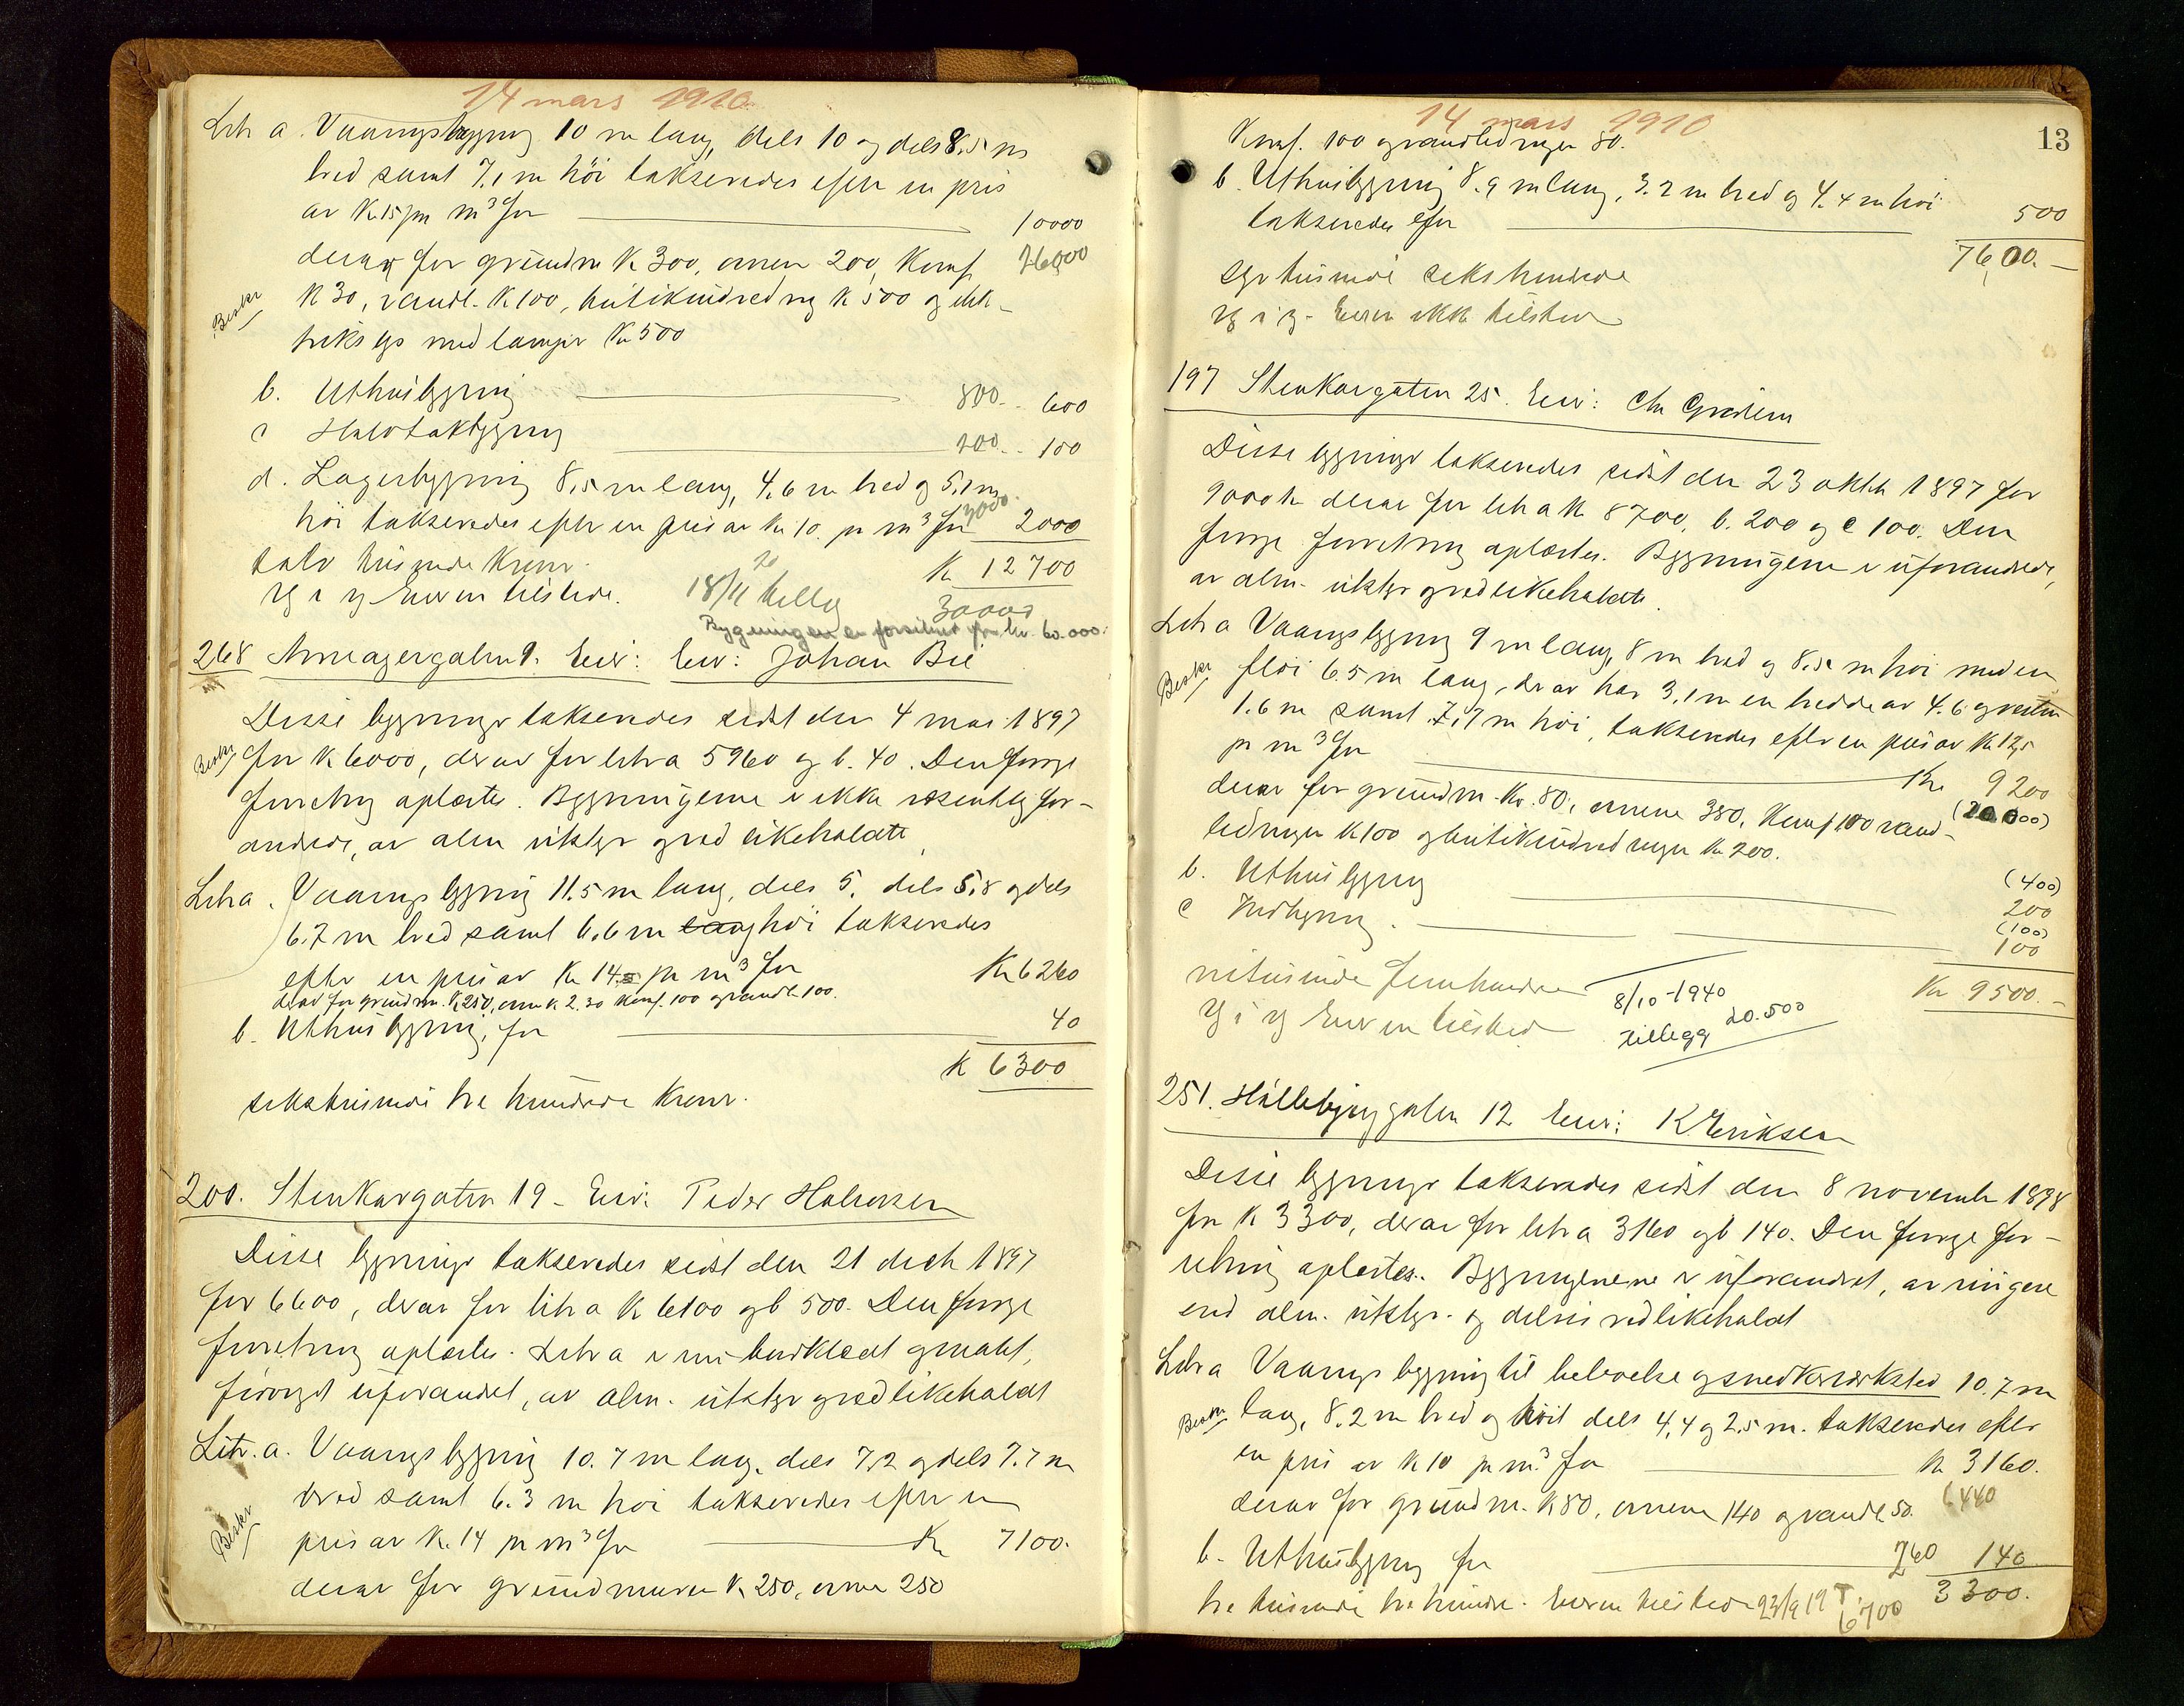 14 mars 1910
Litr a. Vaaningsbygning 10 m lang, dels 10 og dels 8.5 m
bred samt 7.1 m höi takseredes efter en pris
av Kr 15 pr m³ for 10000
derav for grundm K 300, ovnen 200, Komf. 26000
Beskr K 30, vandl. K 100, butikindredning K 500 og elek-
triks lys med lamper Kr 500
b. Uthusbygning 800 - 600
c Halvtakbygning 200 - 100
d. Lagerbygning 8,5 m lang, 4,6 m bred og 5,1 m
höi takseredes efter en pris av Kr 10. pr m³ for 3000 2000
tolv tusinde Kroner. K 12700
og i 7 Eieren tilstede. 18/11 20 tillæg 30000
Bygningen er forsikret for kr. 60.000.
268 Armagergaten 9. Eier: Eier: Johan Bie
Disse bygninger takseredes sidst den 4 mai 1897
Beskr for K 6000, derav for litra 5960 og b. 40. Den forrige
forretning oplæstes. Bygningerne er ikke væsentlig for-
andrede, av alm utstyr og vedlikeholdte
Litra. Vaaningsbygning 11.5 m lang, dels 5, dels 5,8 og dels
6.7 m bred samt 6.6 m lang höi takseredes
efter en pris av Kr 14.5 pr m³ for Kr 6260
derav for grundm. K 250, ovne K 230 Komf. 100 og vandl. 100.
b. Uthusbygning, for 40
K 6300
sekstusinde tre hundrede Kroner.
200. Stenkargaten 19 - Eier: Peder Halvorsen
Disse bygninger takseredes sidst den 21 decbr 1897
for 6600, derav for litr a K 6100 og b 500. Den forrige
forretning oplæstes. Litra er ny-bordklædt og malt,
forövrigt uforandret, av alm. utstyr og vedlikeholdt
Litr. a. Vaaningsbygning 10.7 m lang, dels 7,2 og dels 7.7 m
bred samt 6.3 m höi takseredes efter en
Beskr pris av K. 14 pr m³ for Kr 7100.
derav for grundmuren K 250, ovne 250
14 mars 1910
13
Komf. 100 og vandledningen 80.
b. Uthusbygning 8.9 m lang, 3.2 m bred og 4.4 m höi
takseredes for 500
7600.-
syv tusinde seks hundrede
og i 7 - Eieren ikke tilstede
197 Stenkargaten 25. Eier: Chr Gredem
Disse bygninger takseredes sidst den 23 oktbr 1897 for
9000 kr derav for litr a K 8700, b. 200 og c 100. Den
forrige forretning oplæstes. Bygningerne er uforandrede,
av alm. utstyr og vedlikeholdte.
Litr a Vaaningsbygning 9 m lang, 8 m bred og 8.5 m höi med en
Beskr flöi 6.5 m lang, derav har 3,1 m en bredde av 4.6 og resten
1.6 m samt 7,7 m höi, takseredes efter en pris av K 12,5
pr m³ for Kr 9200
derav for grundm. Kr. 80, ovnene 380, Komf 100 vand- (20000)
ledningen K 100 og butikindredningen Kr 200.
b. Uthusbygning (400) 200
c Indbygning. (100) 100
nitusinde femhundrede 8/10-1940 Kr 9500.-
og i 7 Eieren tilstede tillegg 20.500
251. Hillebjerggaten 12 Eier: K Eriksen
Disse bygninger takseredes sidst den 8 november 1898
for K 3300, derav for litr a 3160 og b 140. Den forrige for-
retning oplæstes. Bygningerne er uforandret, av ringere
end alm. utstyr og delvis vedlikeholdt
Litr a Vaaningsbygning til beboelse og snedkerverksted 10.7 m
Beskr lang, 8.2 m bred og höit dels 4,4 og 2,5 m. takseredes efter
en pris av K 10 pr m³. for Kr 3160.
derav for grundm. K 80, ovnene 140 og vandl. 50. 6440
b. Uthusbygning for 260 140
tre tusinde tre hundre. Eieren tilstede 23/9 19 T. 6700 3300.